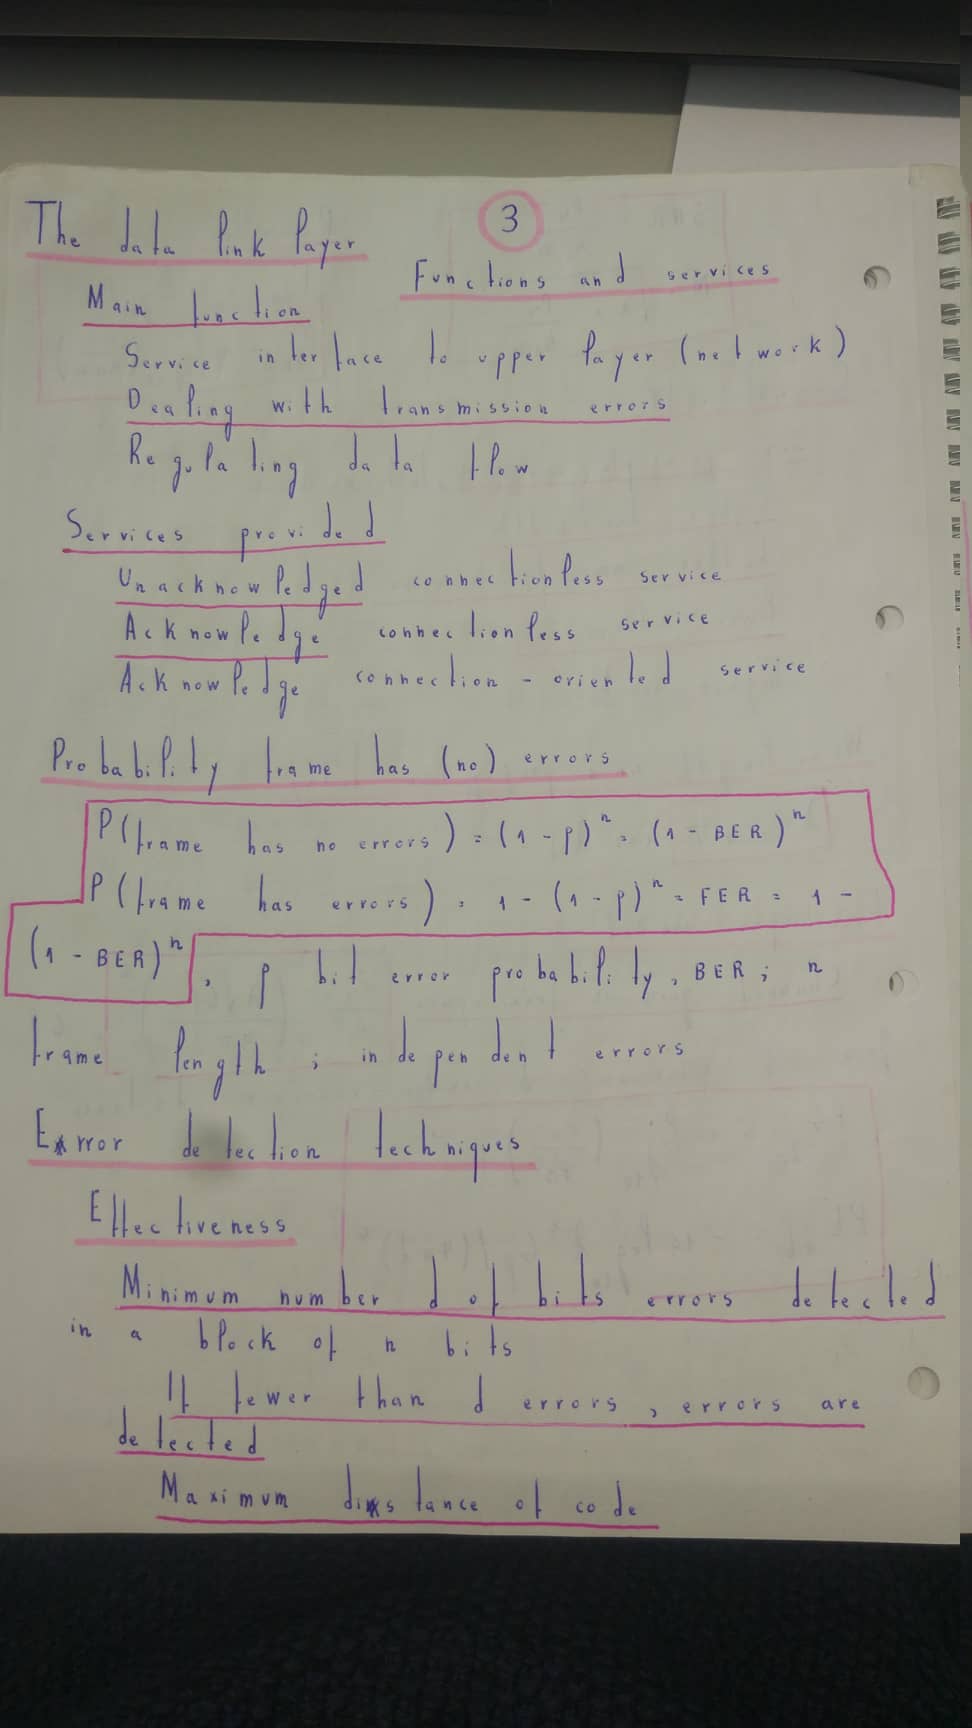 3
The data link layer
Functions and services
Main function
Service interface to upper layer (network)
Dealing with transmission errors
Regulating data flow
Services provided
Unacknowledged connectionless service
Acknowledge connectionless service
Acknowledge connection-oriented service
Probability frame has (no) errors
P(frame has no errors) = (1-p)ⁿ = (1-BER)ⁿ
P(frame has errors) = 1-(1-p)ⁿ = FER = 1-
(1-BER)ⁿ, p bit error probability, BER; n
frame length; independent errors
Error detection techniques
Effectiveness
Minimum number d of bits errors detected
in a block of n bits
If fewer than d errors, errors are
detected
Maximum distance of code